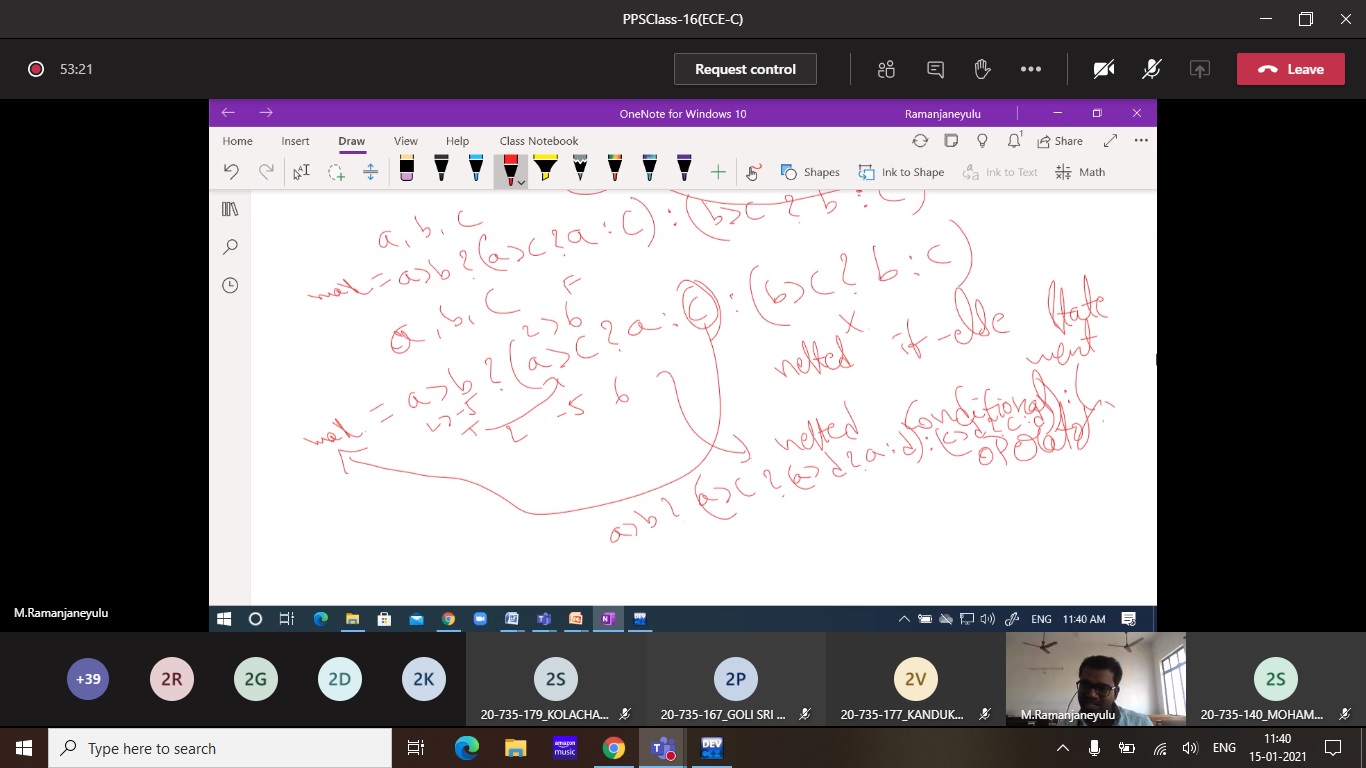 PPSClass-16(ECE-C)
53:21
Request control
Leave
OneNote for Windows 10
Ramanjaneyulu
Home Insert Draw View Help Class Notebook
1
Share
Shapes
Ink to Shape
Ink to Text
Math
a, b, c
max = a>b ? (a>c ? a : c) : (b>c ? b : c)
a, b, c
F
2>6
max = a>b ? (a>c ? a : c) : (b>c ? b : c)
2>-5
T
2 -5 6
X
nested if-else State
ment
nested conditional
operator
a>b ? (a>c ? (a>d ? a : d) : (c>d ? c : d)
M.Ramanjaneyulu
ENG 11:40 AM
+39
2R
2G
2D
2K
2S
20-735-179_KOLACHA...
2P
20-735-167_GOLI SRI ...
2V
20-735-177_KANDUK...
M.Ramanjaneyulu
2S
20-735-140_MOHAM...
Type here to search
amazon
music
DEV
ENG
11:40
15-01-2021